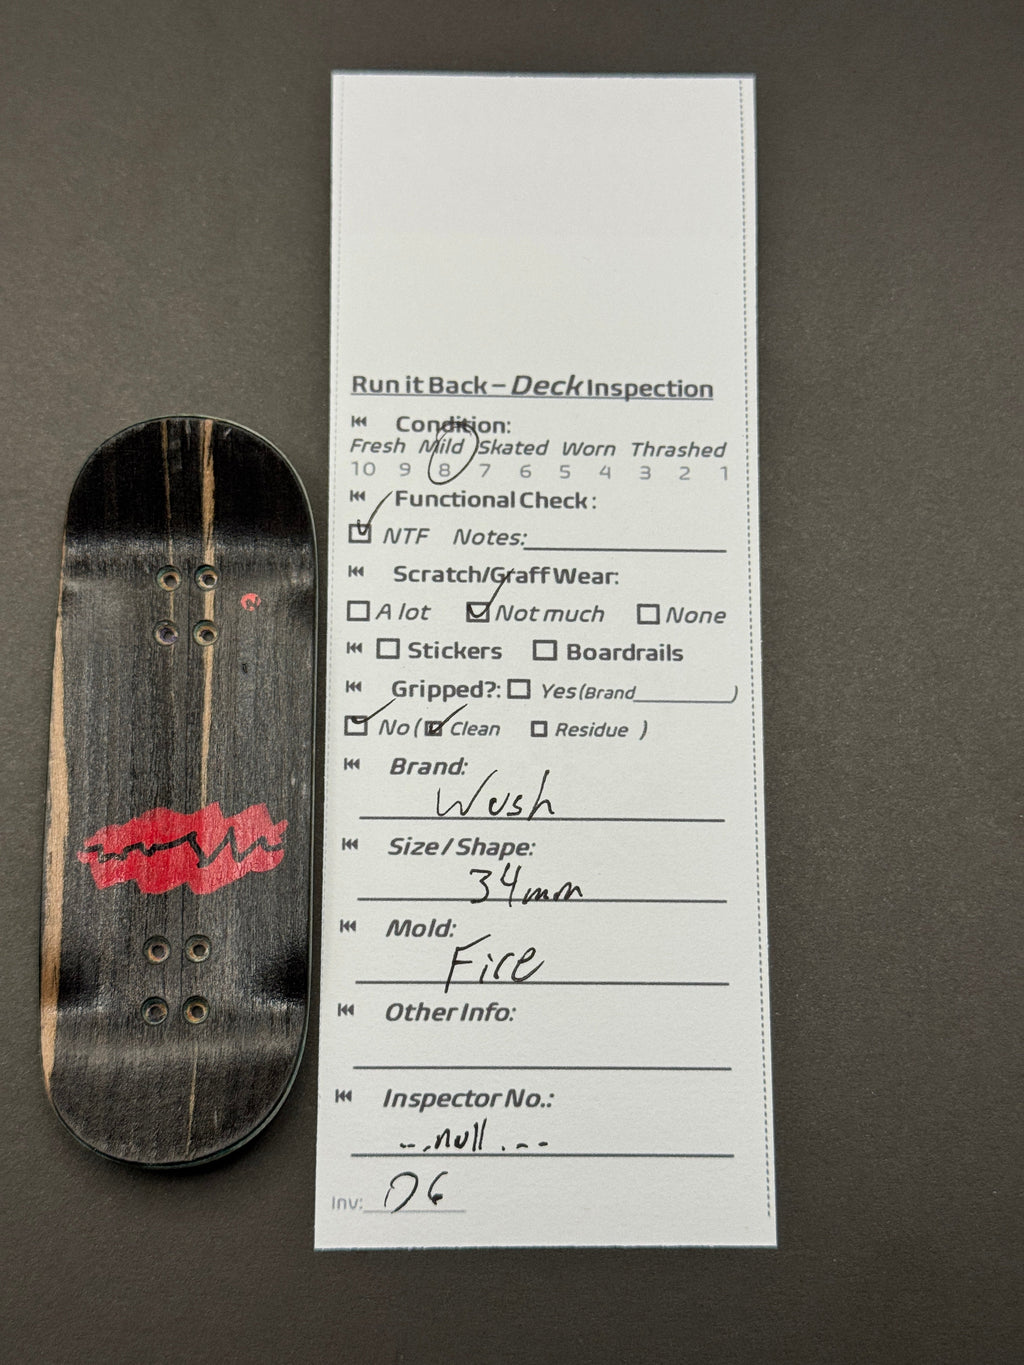 Run it Back – Deck Inspection
Condition:
Fresh Mild Skated Worn Thrashed
10 9 8 7 6 5 4 3 2 1
Functional Check:
NTF Notes:
Scratch/Graff Wear:
A lot Not much None
Stickers Boardrails
Gripped?: Yes (Brand )
No ( Clean Residue )
Brand:
Wush
Size / Shape:
34mm
Mold:
Fire
Other Info:
Inspector No.:
--.null.--
Inv: